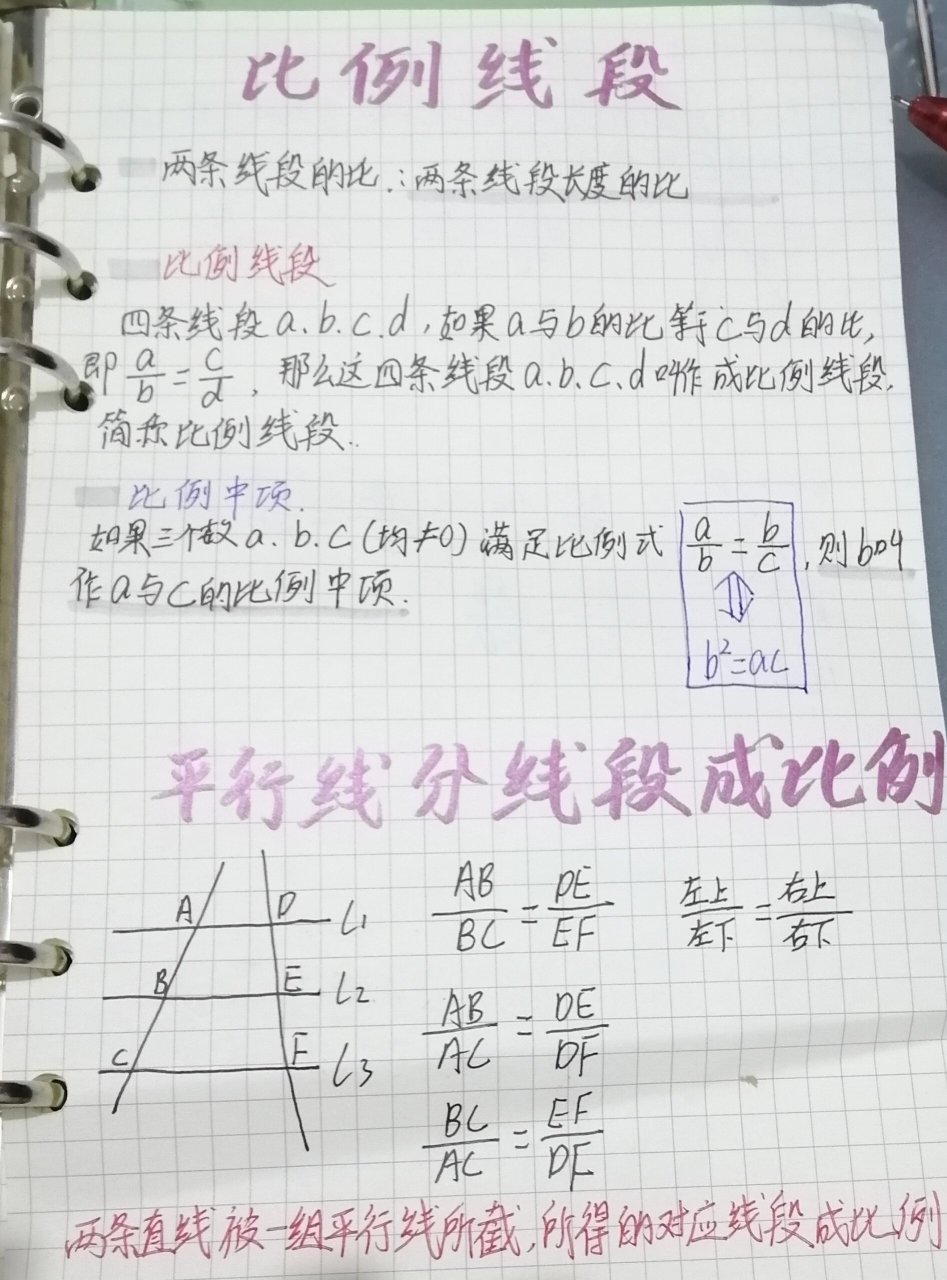 比例线段
两条线段的比：两条线段长度的比
比例线段
四条线段a.b.c.d，如果a与b的比等于c与d的比，
即a/b=c/d，那么这四条线段a.b.c.d叫作成比例线段，
简称比例线段.
比例中项.
如果三个数a.b.c(均≠0)满足比例式 a/b=b/c，则b叫
作a与c的比例中项.
⇕
b²=ac
平行线分线段成比例
A D l1
B E l2
C F l3
AB/BC=DE/EF 左上/左下=右上/右下
AB/AC=DE/DF
BC/AC=EF/DF
两条直线被一组平行线所截，所得的对应线段成比例